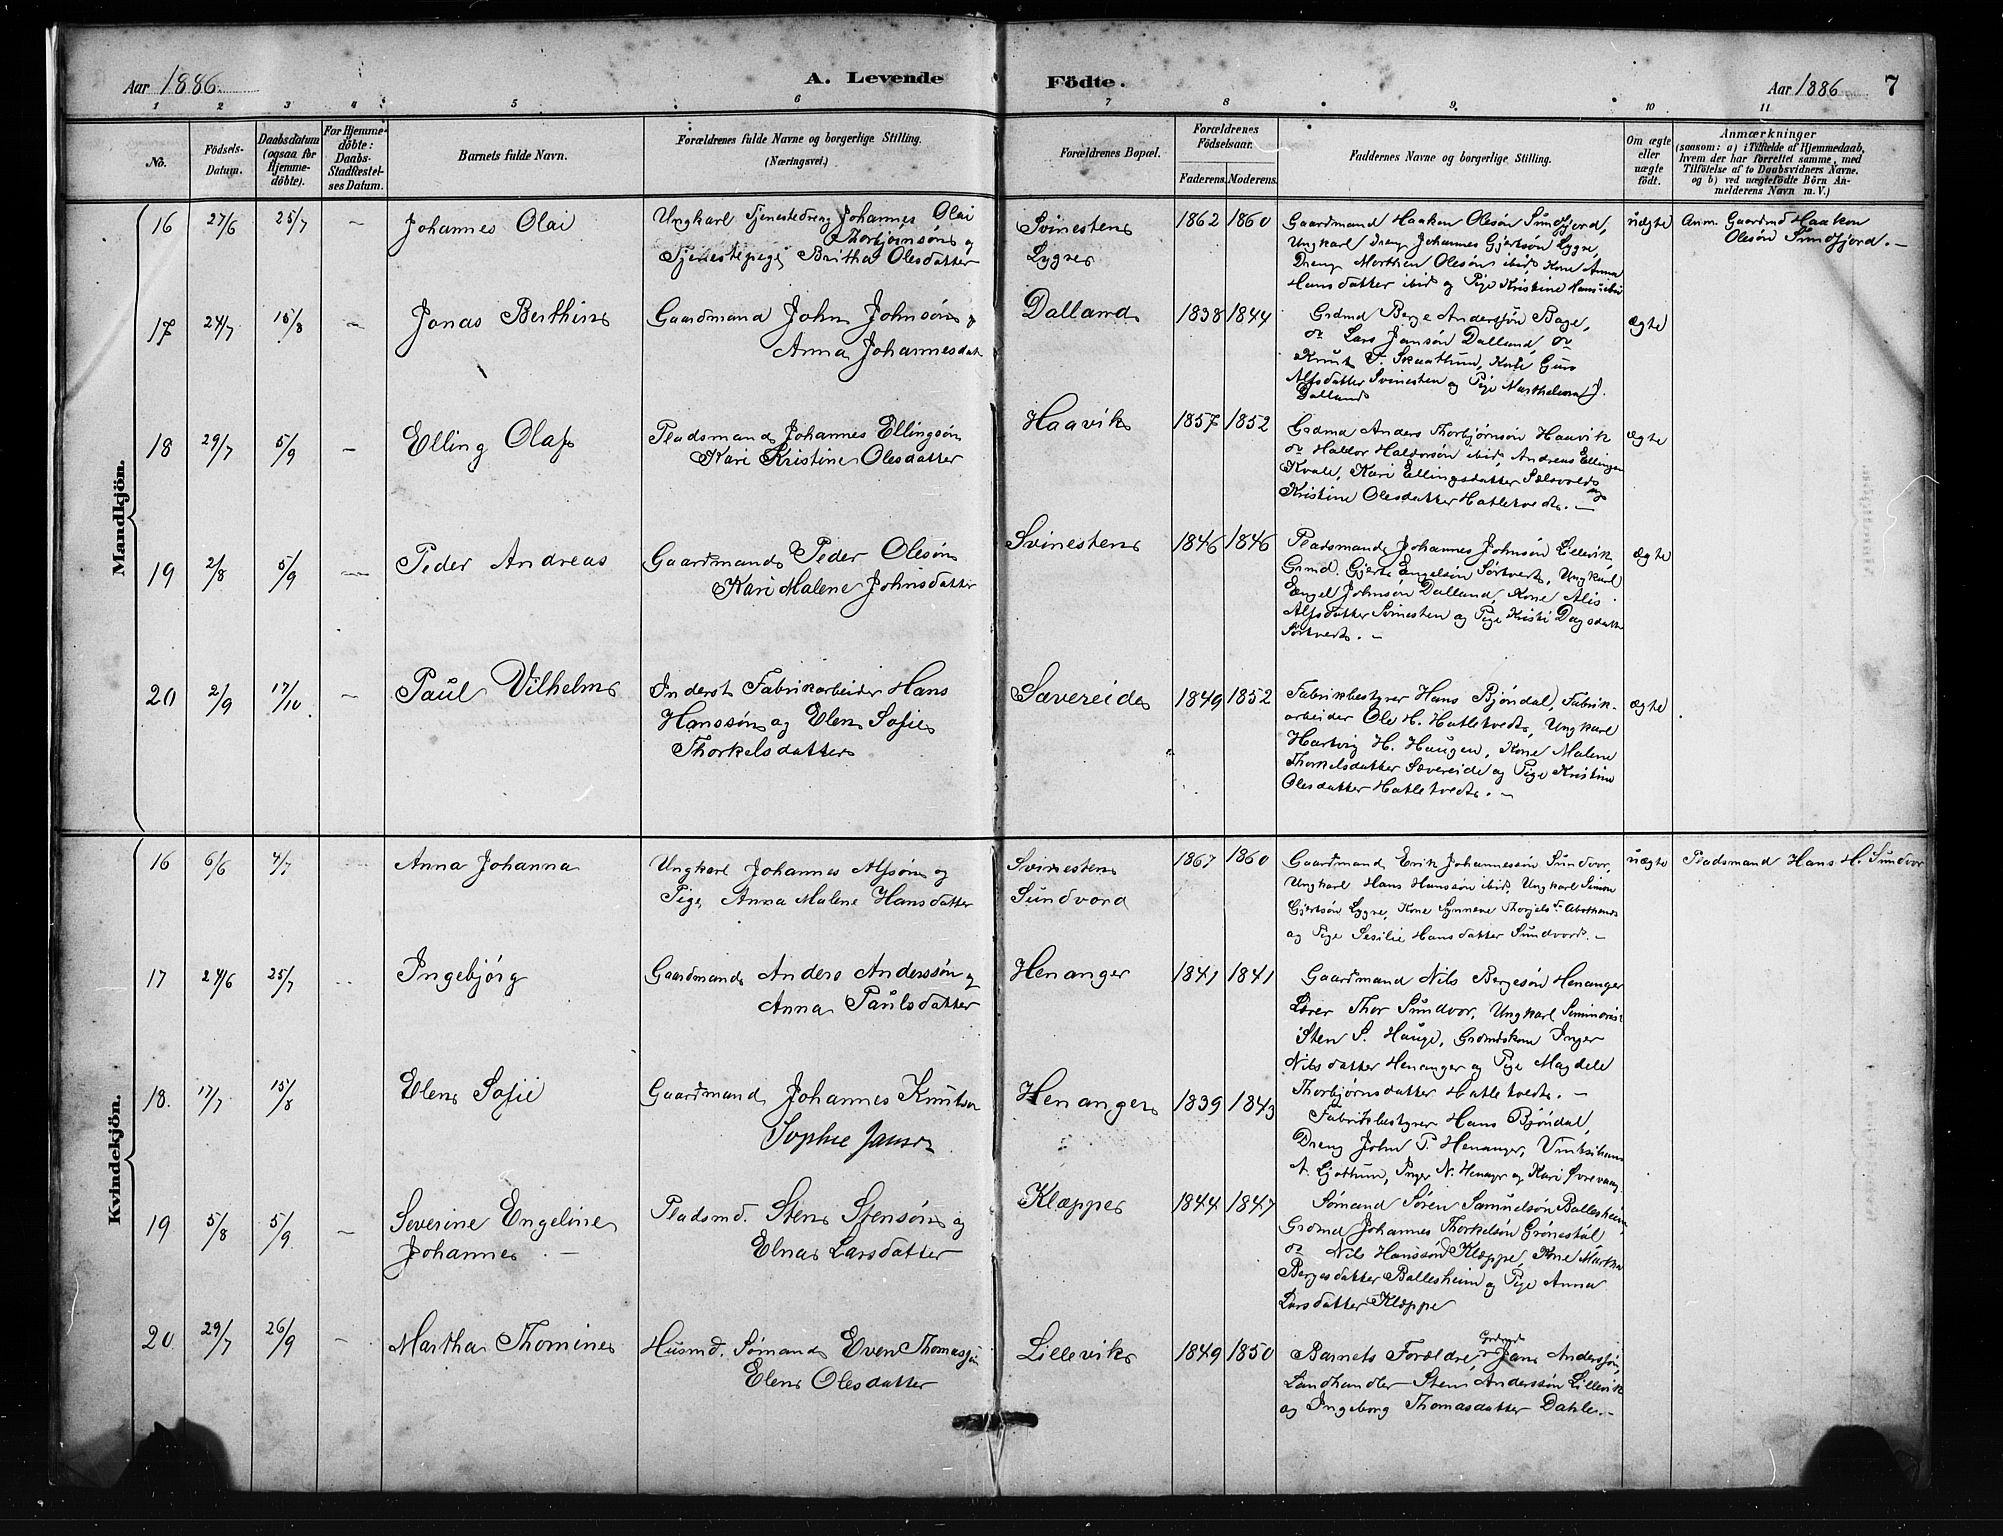 Aar 1886. A. Levende Födte. Aar 1886 7
1 2 3 4 5 6 7 8 9 10 11
No. Födsels-Datum. Daabsdatum (ogsaa for Hjemmedöbte). For Hjemmedöbte: Daabs-Stadfæstelses Datum. Barnets fulde Navn. Forældrenes fulde Navne og borgerlige Stilling. (Næringsvei.) Forældrenes Bopæl. Forældrenes Födselsaar. Faderens. Moderens. Faddernes Navne og borgerlige Stilling. Om ægte eller uægte födt. Anmærkninger (saasom: a) i Tilfælde af Hjemmedaab, hvem der har forrettet samme, med Tilföielse af to Daabsvidners Navne, og b) ved uægtefödte Börn Anmelderens Navn m. V.)
Mandkjön.
16 27/6 25/7 – Johannes Olai
Ungkarl Tjenestedreng Johannes Olai
Thorbjørnsøn og
Tjenestepige Britha Olesdatter
Svinesten
Lygre
1862 1860
Gaardmand Haakon Olesøn Sundfjord,
Ungkarl Dreng Johannes Gjertsøn Lygre,
Dreng Morthen Olesøn ibid, Kone Anna
Hansdatter ibid og Pige Kristine Hans ibid
uægte
Anm. Gaardmd Haakon
Olesøn Sundfjord. –
17 24/7 15/8 – Jonas Berthin
Gaardmand John Johnsøn og
Anna Johannesdat
Dalland
1838 1844
Grdmd Berge Anderssøn Bage,
do Lars Jansøn Dalland, do
Knut T. Skaathun, Kone Guro
Alfsdatter Svinesten og Pige Marthelina J.
Dalland
ægte
18 29/7 5/9 – Elling Olaf
Pladsmand Johannes Ellingsøn
Kari Kristine Olesdatter
Haavik
1857 1852
Grdmd Anders Thorbjørnsøn Haavik
do Haldor Haldorsøn ibid, Andreas Ellingsen
Kvale, Kari Ellingsdatter Sælsvold og
Kristine Olesdatter Hatletvedt. –
ægte
19 2/8 5/9 – Peder Andreas
Gaardmand Peder Olesøn
Kari Malene Johnsdatter
Svinesten
1846 1846
Pladsmand Johannes Johnsøn Lillevik,
Grmd. Gjert Engelsøn Sørtvedt, Ungkarl
Engel Johnsøn Dalland, Kone Alis
Alfsdatter Svinesten og Pige Kristi Dagsdatter
Sørtvedt. –
ægte
20 2/9 17/10 – Paul Vilhelm
Inderst Fabrikarbeider Hans
Hanssøn og Elen Sofie
Thorkelsdatter
Sævereide
1849 1852
Fabrikbestyrer Hans Bjøndal, Fabrik-
arbeider Ole H. Hatletvedt, Ungkarl
Hartvig H. Haugen, Kone Malene
Thorkelsdatter Sævereide og Pige Kristine
Olesdatter Hatletvedt. –
ægte
Kvindekjön.
16 6/6 4/7 Anna Johanna
Ungkarl Johannes Alfsøn og
Pige Anna Malene Hansdatter
Svinesten
Sundvord
1867 1860
Gaardmand Erik Johannessøn Sundvor,
Ungkarl Hans Hanssøn ibid, Ungkarl Simon
Gjertsøn Lygre, Kone Synneve Thorjels
og Pige Sesilie Hansdatter Sundvord. –
uægte
Pladsmand Hans H. Sundvor
17 24/6 25/7 Ingebjørg
Gaardmand Anders Anderssøn og
Anna Paulsdatter
Henanger
1841 1841
Gaardmand Nils Bergesøn Henanger
Lærer Thor Sundvor, Ungkarl Seminarist
Sten S. Hauge, Grdmdskone Inger
Nilsdatter Henanger og Pige Magdele
Thorbjørnsdatter Hatletvedt. –
18. 17/7 15/8 Elen Sofie
Gaardmand Johannes Knutsøn
Sophie Jansd
Henanger
1839 1843
Fabrikbestyrer Hans Bjøndal,
Dreng John P. Henanger,
Inger N. Henanger og Kari
19 5/8 5/9 – Severine Engeline
Johannes –
Pladsmd. Sten Stensøn og
Elna Larsdatter
Klæppe
1844 1847
Sømand Søren Samuelsøn Ballesheim
Grdmd Johannes Thorkelsøn Grønestøl
do Nils Hanssøn Klæppe, Kone Martha
Bergesdatter Ballesheim og Pige Anna
Larsdatter Klæppe
20 29/7 26/9 – Martha Thomine
Husmd. Sømand Even Thomassøn
Elen Olesdatter
Lillevik
1849 1850
Barnets Forældre, Grdmd Jan Anderssøn,
Landhandler Sten Anderssøn Lillevik
og Ingeborg Thomasdatter Dahle. –